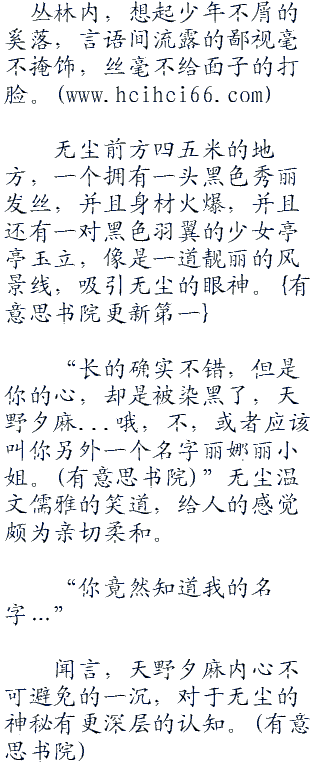 丛林内，想起少年不屑的
奚落，言语间流露的鄙视毫
不掩饰，丝毫不给面子的打
脸。(www.hcihci66.com)
无尘前方四五米的地
方，一个拥有一头黑色秀丽
发丝，并且身材火爆，并且
还有一对黑色羽翼的少女亭
亭玉立，像是一道靓丽的风
景线，吸引无尘的眼神。{有
意思书院更新第一}
“长的确实不错，但是
你的心，却是被染黑了，天
野夕麻...哦，不，或者应该
叫你另外一个名字丽娜丽小
姐。(有意思书院)”无尘温
文儒雅的笑道，给人的感觉
颇为亲切柔和。
“你竟然知道我的名
字…”
闻言，天野夕麻内心不
可避免的一沉，对于无尘的
神秘有更深层的认知。(有意
思书院)